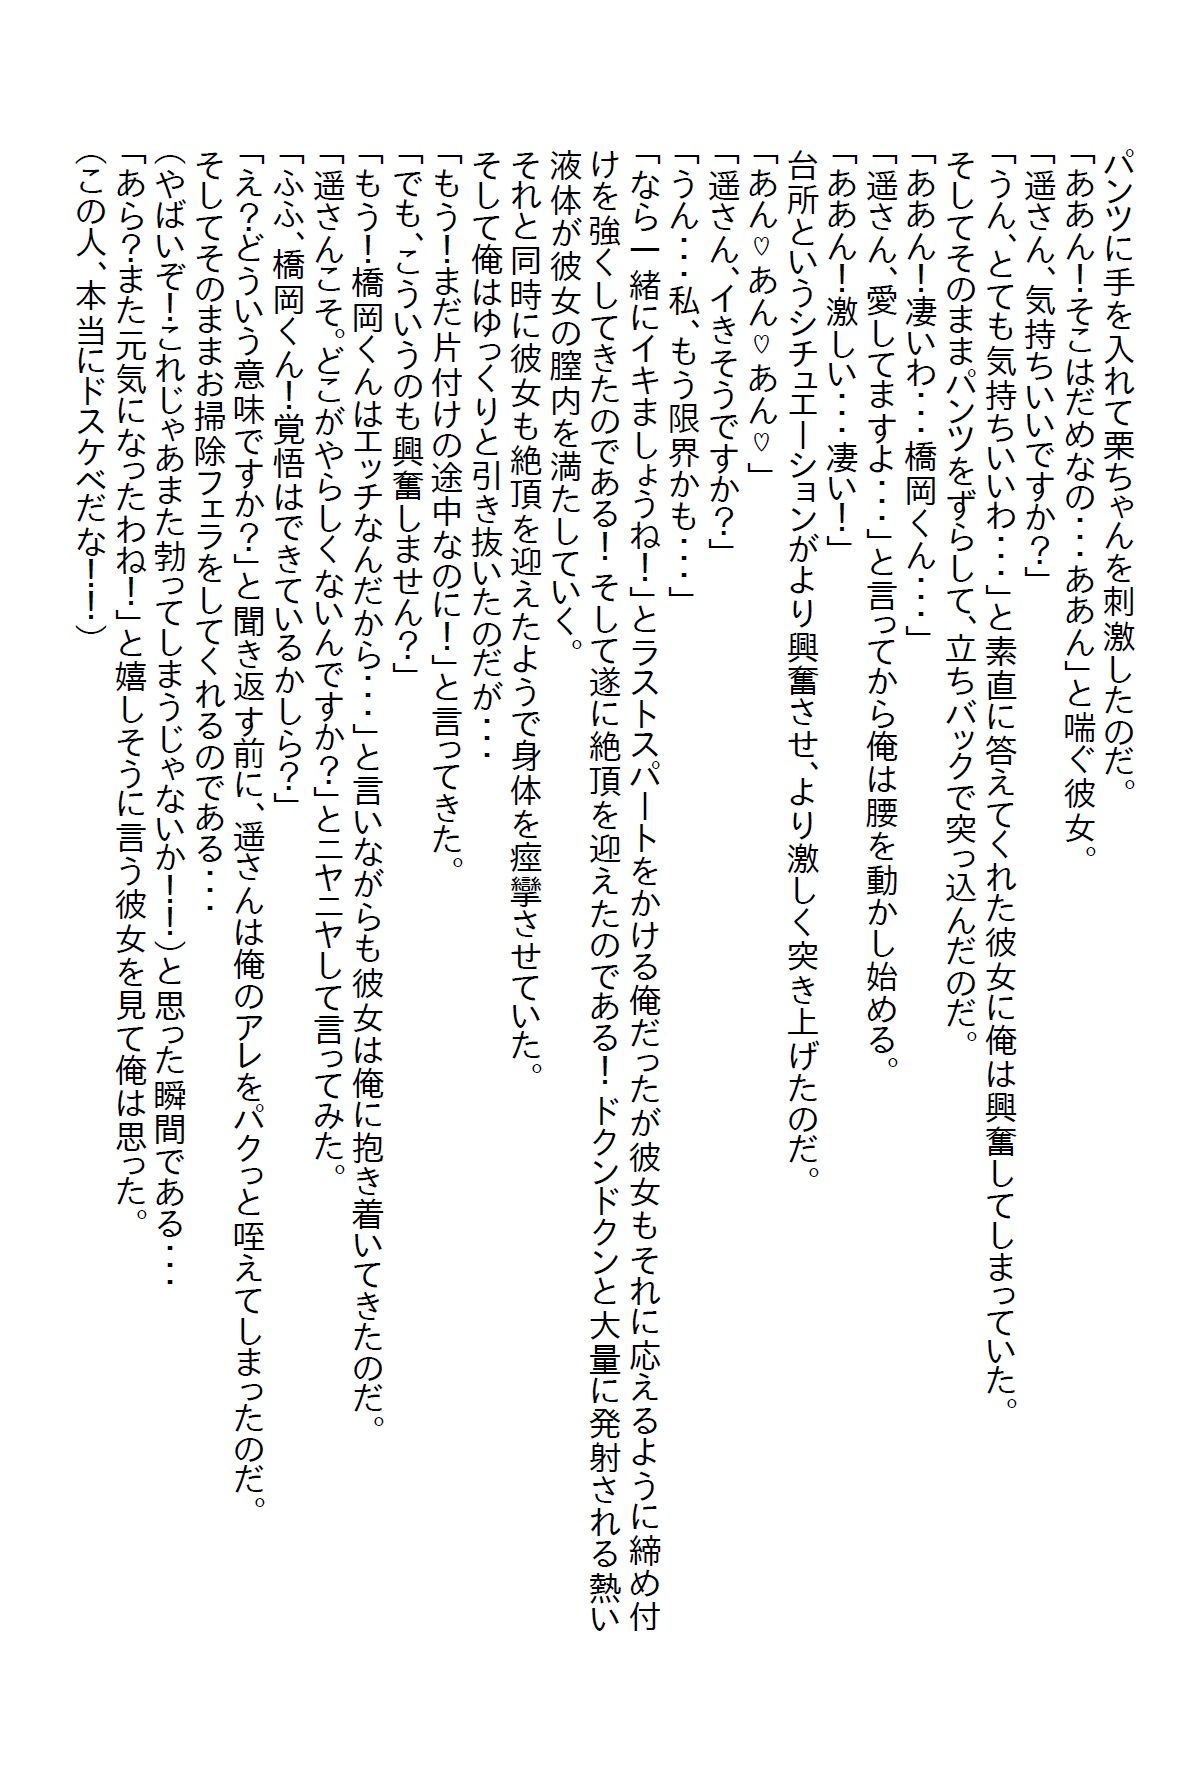 パンツに手を入れて栗ちゃんを刺激したのだ。
「ああん！そこはだめなの・・・ああん」と喘ぐ彼女。
「遥さん、気持ちいいですか？」
「うん、とても気持ちいいわ・・・」と素直に答えてくれた彼女に俺は興奮してしまっていた。
そしてそのままパンツをずらして、立ちバックで突っ込んだのだ。
「ああん！凄いわ・・・橋岡くん・・・」
「遥さん、愛してますよ・・・」と言ってから俺は腰を動かし始める。
「ああん！激しい・・・凄い！」
台所というシチュエーションがより興奮させ、より激しく突き上げたのだ。
「あん♡あん♡あん♡」
「遥さん、イきそうですか？」
「うん・・・私、もう限界かも・・・」
「なら一緒にイキましょうね！」とラストスパートをかける俺だったが彼女もそれに応えるように締め付
けを強くしてきたのである！そして遂に絶頂を迎えたのである！ドクンドクンと大量に発射される熱い
液体が彼女の膣内を満たしていく。
それと同時に彼女も絶頂を迎えたようで身体を痙攣させていた。
そして俺はゆっくりと引き抜いたのだが・・・
「もう！まだ片付けの途中なのに！」と言ってきた。
「でも、こういうのも興奮しません？」
「もう！橋岡くんはエッチなんだから・・・」と言いながらも彼女は俺に抱き着いてきたのだ。
「遥さんこそ。どこがやらしくないんですか？」とニヤニヤして言ってみた。
「ふふ、橋岡くん！覚悟はできているかしら？」
「え？どういう意味ですか？」と聞き返す前に、遥さんは俺のアレをパクっと咥えてしまったのだ。
そしてそのままお掃除フェラをしてくれるのである・・・
（やばいぞ！これじゃあまた勃ってしまうじゃないか！！）と思った瞬間である・・・
「あら？また元気になったわね！」と嬉しそうに言う彼女を見て俺は思った。
（この人、本当にドスケベだな！！）